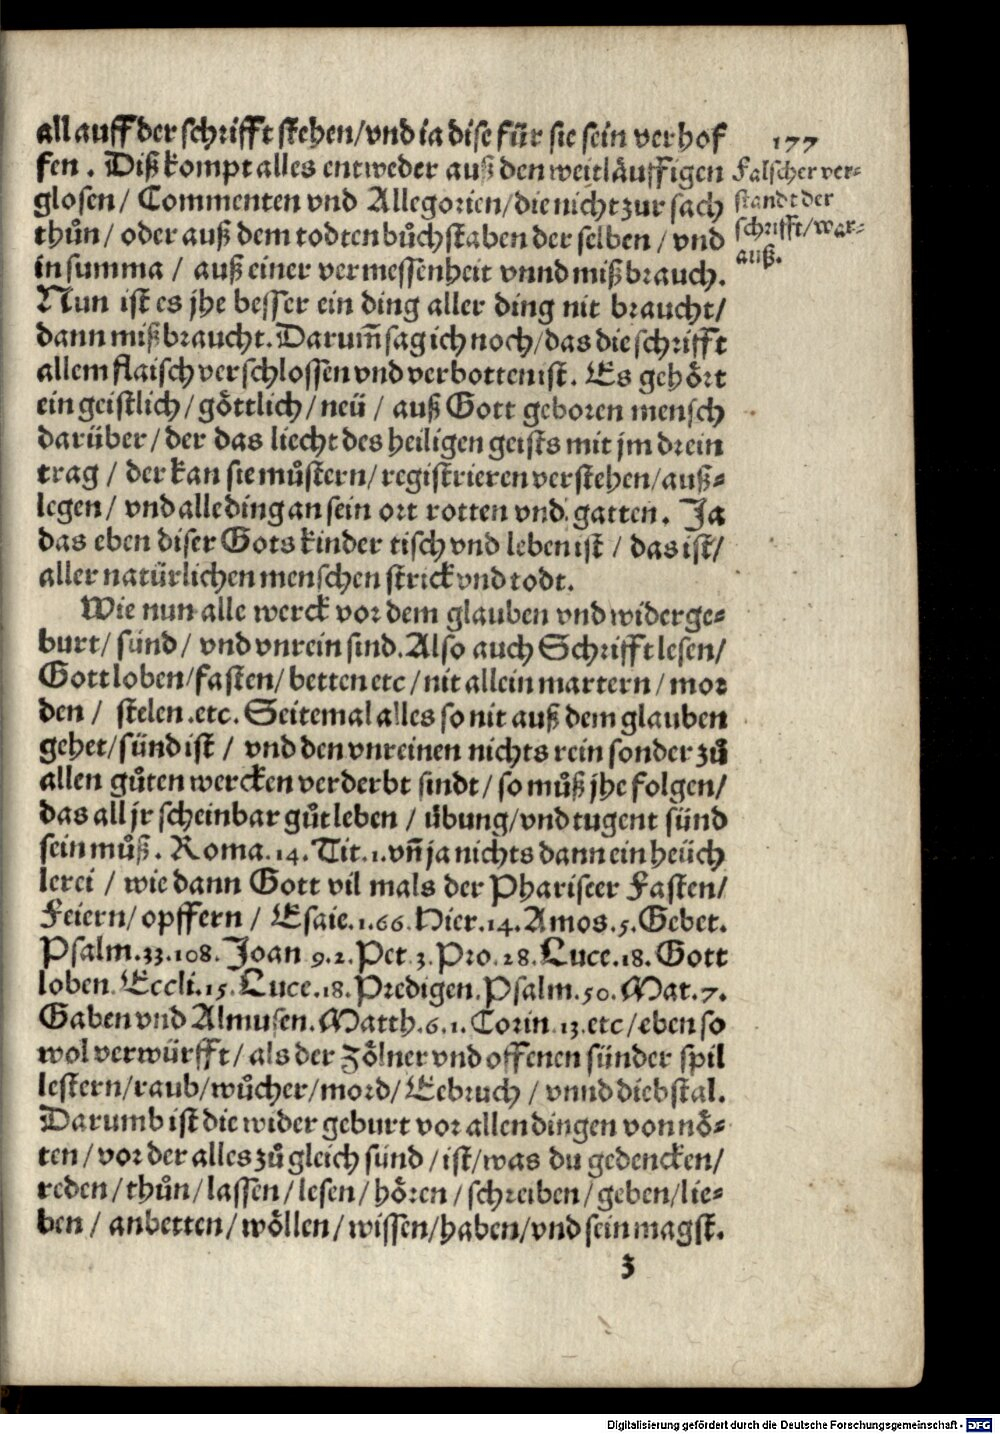 all auff der schrifft stehen/vnd ia dise für sie sein verhof
fen. Diß kompt alles entweder auß den weitläuffigen
glosen/ Commenten vnd Allegorien/die nicht zur sach
thůn/ oder auß dem todten bůchstaben der selben/ vnd
in summa/ auß einer vermessenheit vnnd mißbrauch.
Nun ist es jhe besser ein ding aller ding nit braucht/
dann mißbraucht. Darum̃ sag ich noch/das die schrifft
allem flaisch verschlossen vnd verbotten ist. Es gehört
ein geistlich/göttlich/neü/ auß Gott geboren mensch
darüber/der das liecht des heiligen geists mit jm drein
trag/ der kan sie můstern/registrieren verstehen/auß-
legen/ vnd alle ding an sein ort rotten vnd gatten. Ja
das eben diser Gots kinder tisch vnd leben ist/ das ist/
aller natürlichen menschen strick vnd todt.
Wie nun alle werck vor dem glauben vnd widerge-
burt/ sünd/ vnd vnrein sind. Also auch Schrifft lesen/
Gott loben/fasten/ betten etc/nit allein martern/mor
den/ stelen.etc. Seitemal alles so nit auß dem glauben
gehet/sünd ist/ vnd den vnreinen nichts rein sonder zů
allen gůten wercken verderbt sindt/so můß jhe folgen/
das all jr scheinbar gůt leben/ übung/vnd tugent sünd
sein můß. Roma.14. Tit.1.vñ ja nichts dann ein heüch
lerei/ wie dann Gott vil mals der Phariseer Fasten/
Feiern/opffern/ Esaie.1.66. Hier.14.Amos.5.Gebet.
Psalm.33.108. Joan 9.2.Pet.3.Pro.28.Luce.18. Gott
loben. Eccli.15.Luce.18.Predigen.Psalm.50.Mat.7.
Gaben vnd Almusen. Matth.6.1. Corin.13.etc/eben so
wol verwürfft/als der Zölner vnd offenen sünder spil
lestern/raub/wůcher/mord/Eebruch/ vnnd diebstal.
Darumb ist die wider geburt vor allen dingen von nö-
ten/vor der alles zů gleich sünd/ist/was du gedencken/
reden/thůn/lassen/lesen/hören/schreiben/geben/lie-
ben/ anbetten/wöllen/wissen/haben/vnd sein magst.
z
177
Falscher ver-
standt der
schrifft/war-
auß.
Digitalisierung gefördert durch die Deutsche Forschungsgemeinschaft - DFG